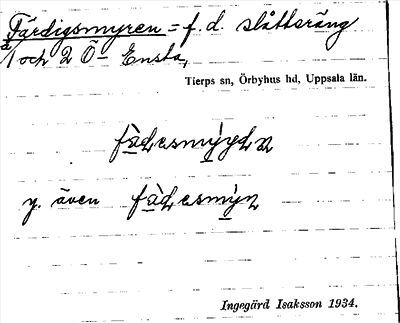 Färdigsmyren = f. d. slåttsräng
å 1 och 2 Ö- Ensta,
Tierps sn, Örbyhus hd, Uppsala län.
y. även
Ingegärd Isaksson 1934.